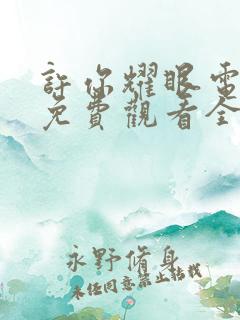 許你耀眼電
免費觀看全
永野脩身
未经同意禁止转载